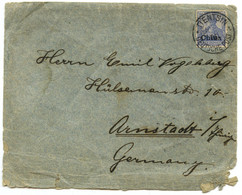 TIENTSIN
China
Herrn Emil Vogelsberg
Hülsenenstr. 16
Arnstadt i/Thüring
Germany.